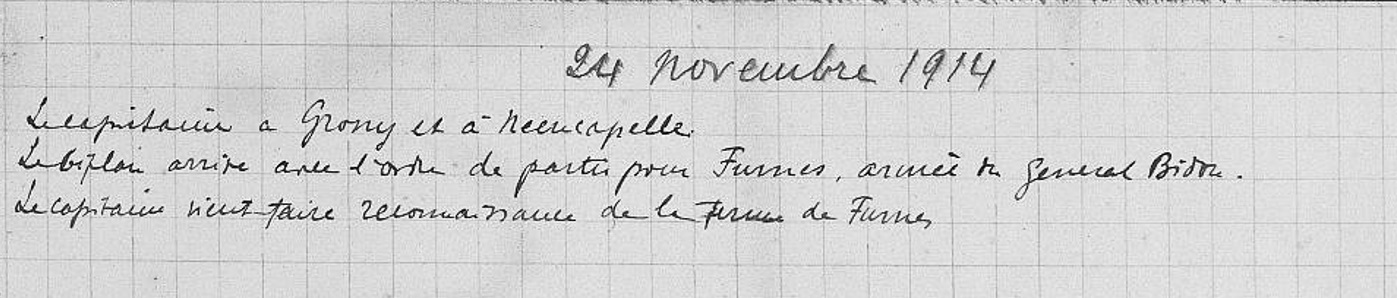 24 novembre 1914
Le capitaine a Grosny et à Neencapelle.
Le biplan arrive avec l'ordre de partir pour Furnes, armée du général Bidon.
Le capitaine vient faire reconnaissance de la ferme de Furnes